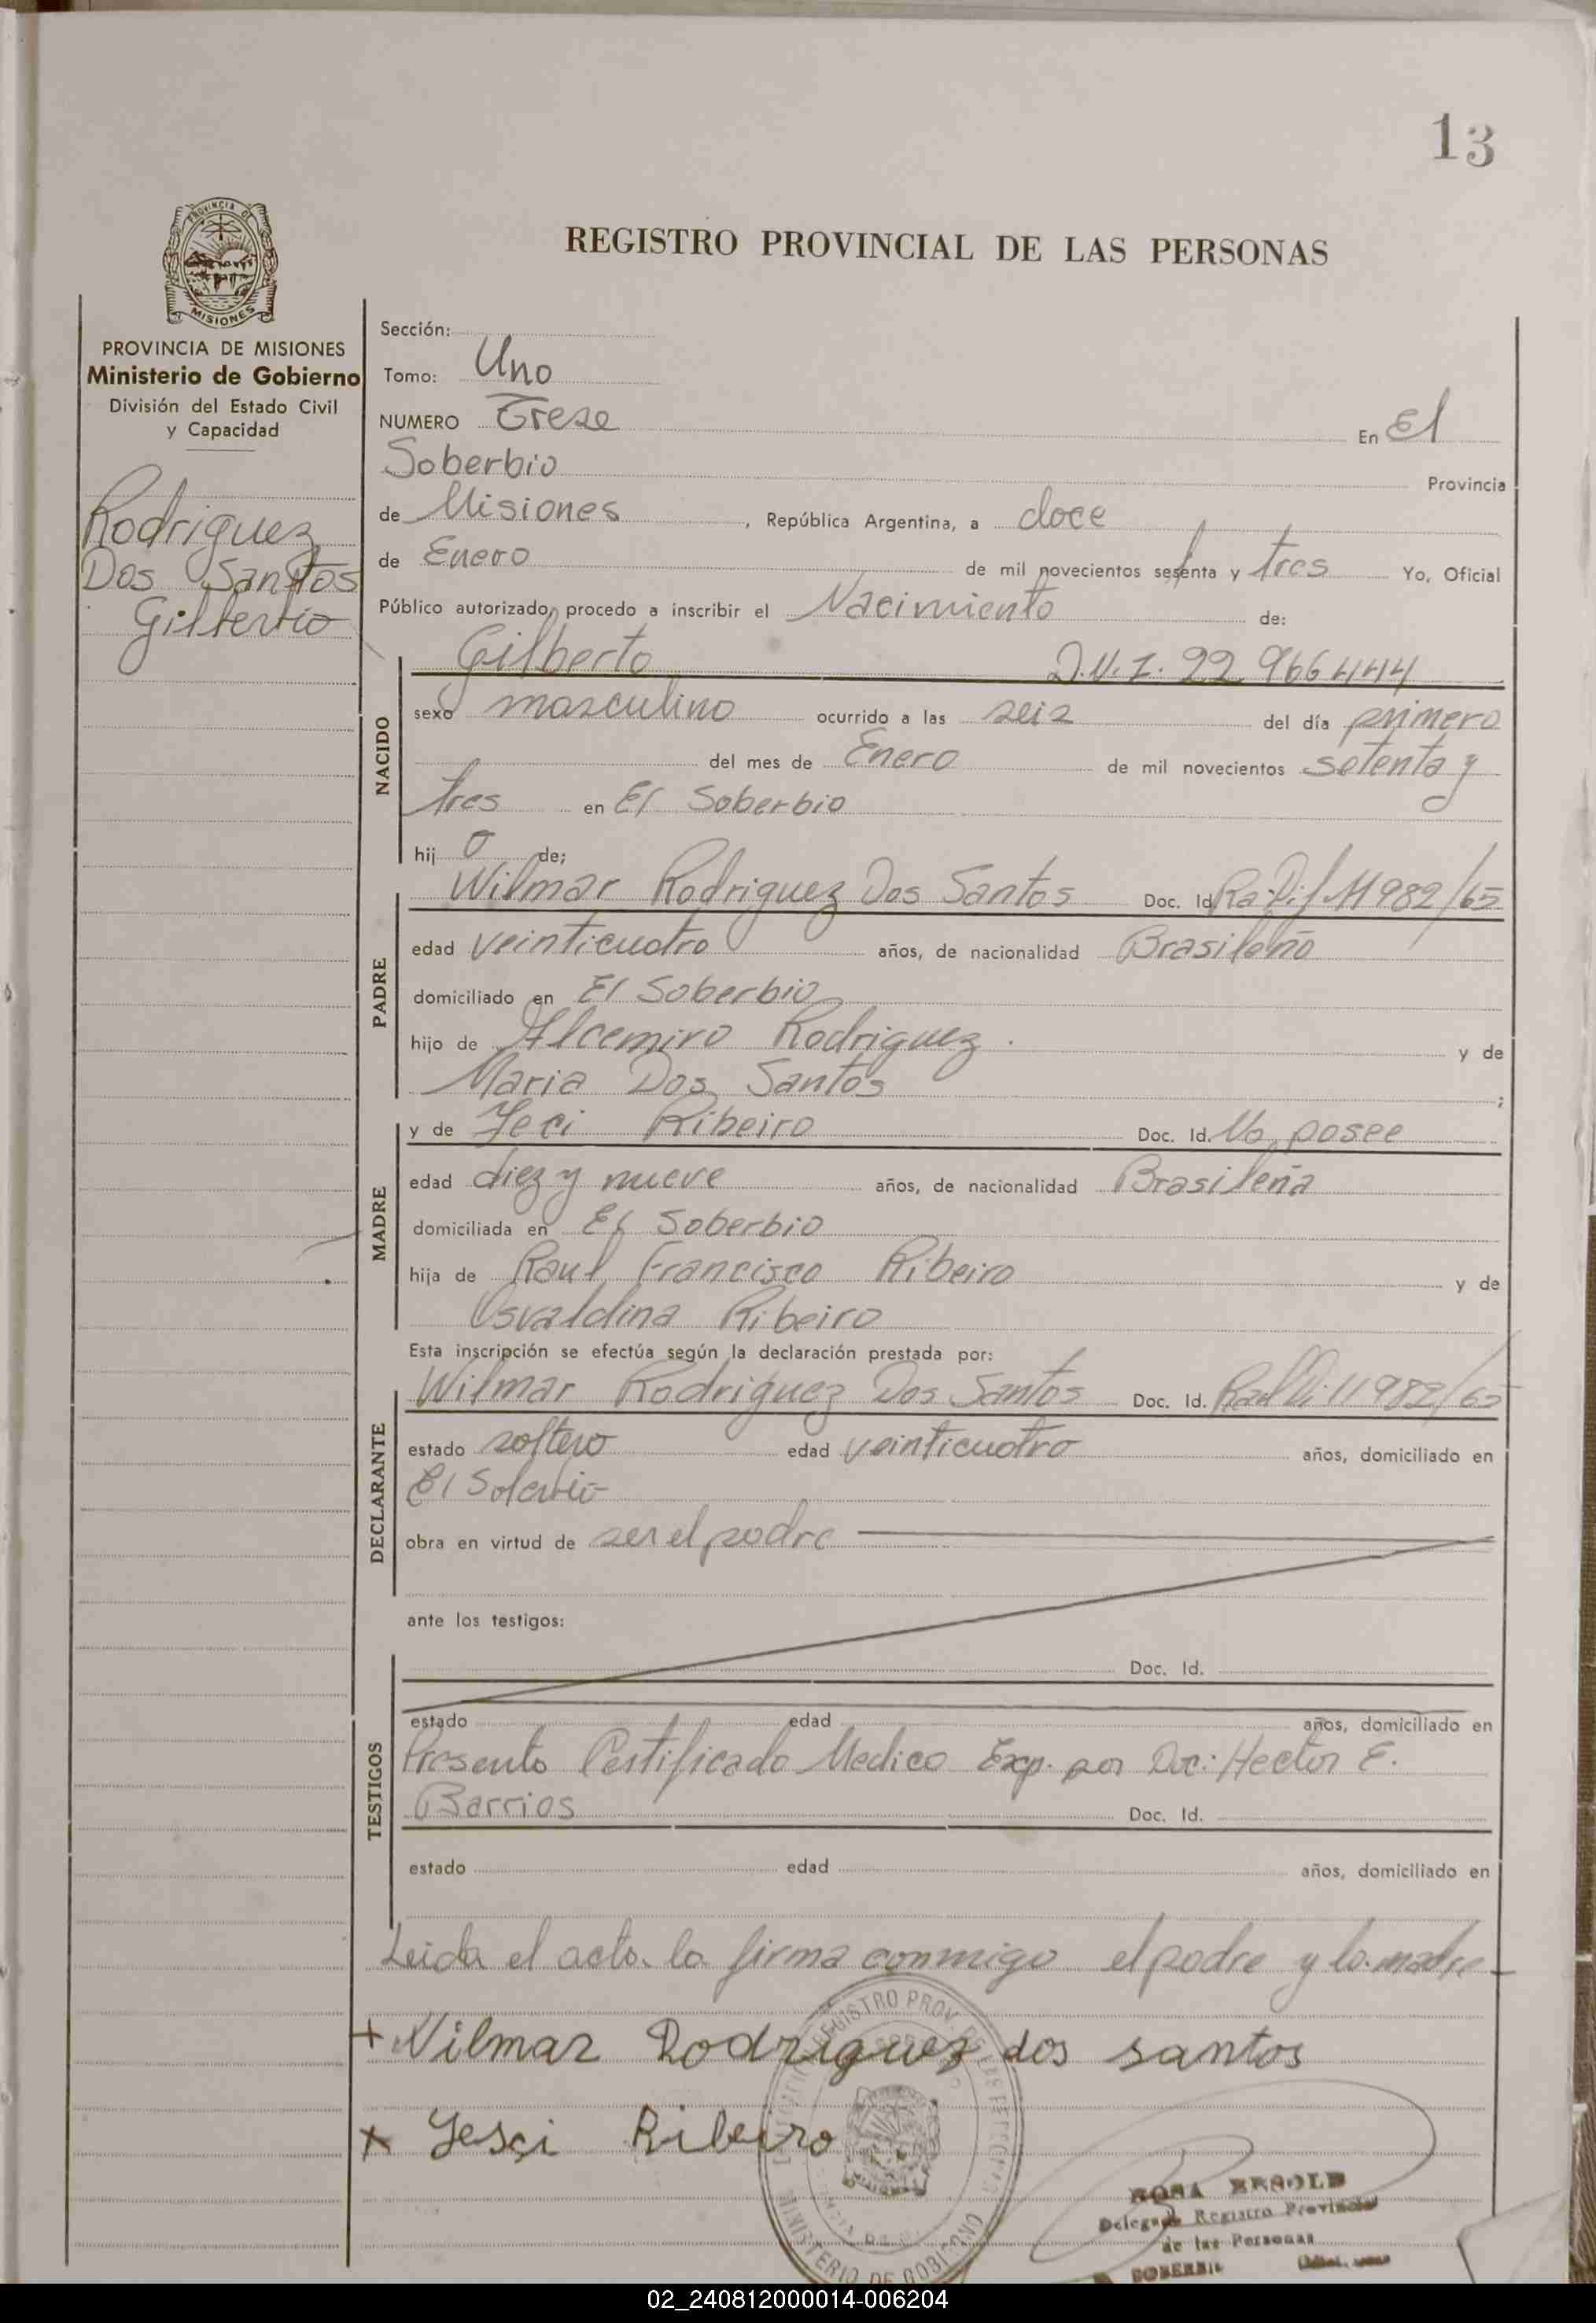 13
REGISTRO PROVINCIAL DE LAS PERSONAS
PROVINCIA DE MISIONES
Ministerio de Gobierno
División del Estado Civil
y Capacidad
Rodriguez
Dos Santos
Gilberto
Sección:
Tomo: Uno
NUMERO Trese En El
Soberbio Provincia
de Misiones, República Argentina, a doce
de Enero de mil novecientos setenta y tres Yo, Oficial
Público autorizado, procedo a inscribir el Nacimiento de:
NACIDO
Gilberto D.N.I. 22 966444
sexo masculino ocurrido a las seis del día primero
del mes de Enero de mil novecientos setenta y
tres en El Soberbio
hij o de;
PADRE
Wilmar Rodriguez Dos Santos Doc. Id. 11982/65
edad veinticuatro años, de nacionalidad Brasileño
domiciliado en El Soberbio
hijo de Alcemiro Rodriguez. y de
Maria Dos Santos ;
MADRE
y de Jeci Ribeiro Doc. Id. No posee
edad diez y nueve años, de nacionalidad Brasileña
domiciliada en El Soberbio
hija de Raul Francisco Ribeiro y de
Osvaldina Ribeiro
Esta inscripción se efectúa según la declaración prestada por:
DECLARANTE
Wilmar Rodriguez Dos Santos Doc. Id. 11982/65
estado soltero edad veinticuatro años, domiciliado en
El Soberbio
obra en virtud de ser el padre
ante los testigos:
TESTIGOS
Doc. Id.
estado edad años, domiciliado en
Presento Certificado Medico Exp. por Doc: Hector E.
Barrios Doc. Id.
estado edad años, domiciliado en
Leida el acta. la firma conmigo el padre y la madre
+ Vilmar Rodriguez dos santos
x Jesci Ribeiro
ROSA
Delegada Registro Provincial
de las Personas
SOBERBIO
MINISTERIO DE GOBIERNO
02_240812000014-006204